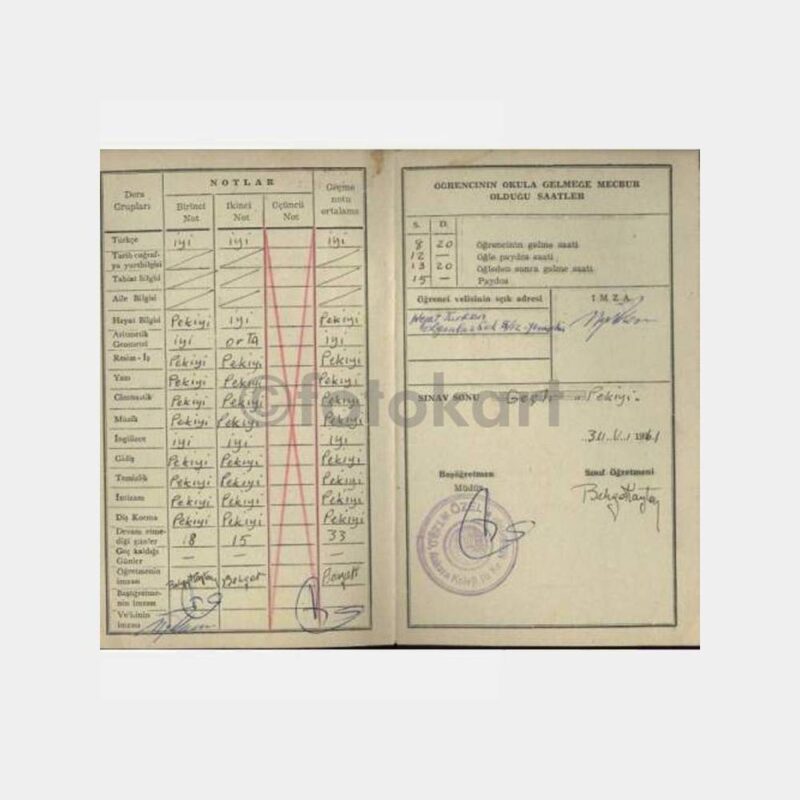 NOTLAR
Ders Grupları
Birinci Not
İkinci Not
Üçüncü Not
Geçme notu ortalama
Türkçe iyi iyi iyi
Tarih coğrafya yurtbilgisi
Tabiat Bilgisi
Aile Bilgisi
Hayat Bilgisi Pekiyi iyi Pekiyi
Aritmetik Geometri iyi orta iyi
Resim - İş Pekiyi Pekiyi Pekiyi
Yazı Pekiyi Pekiyi Pekiyi
Cimnastik Pekiyi Pekiyi Pekiyi
Müzik Pekiyi Pekiyi Pekiyi
İngilizce iyi iyi iyi
Gidiş Pekiyi Pekiyi Pekiyi
Temizlik Pekiyi Pekiyi Pekiyi
İntizam Pekiyi Pekiyi Pekiyi
Diş Koruma Pekiyi Pekiyi Pekiyi
Devam etmediği günler 18 15 33
Geç kaldığı Günler — — —
Öğretmenin imzası Behçet Behçet
Başöğretmenin İmzası
Velisinin imzası
ÖĞRENCİNİN OKULA GELMEĞE MECBUR
OLDUĞU SAATLER
S. D.
8 20 Öğrencinin gelme saati
12 — Öğle paydos saati
13 20 Öğleden sonra gelme saati
15 — Paydos
Öğrenci velisinin açık adresi
İMZA
SINAV SONU Geçti Pekiyi.
31.V.1961
Başöğretmen
Müdür
Sınıf Öğretmeni
©fotokart